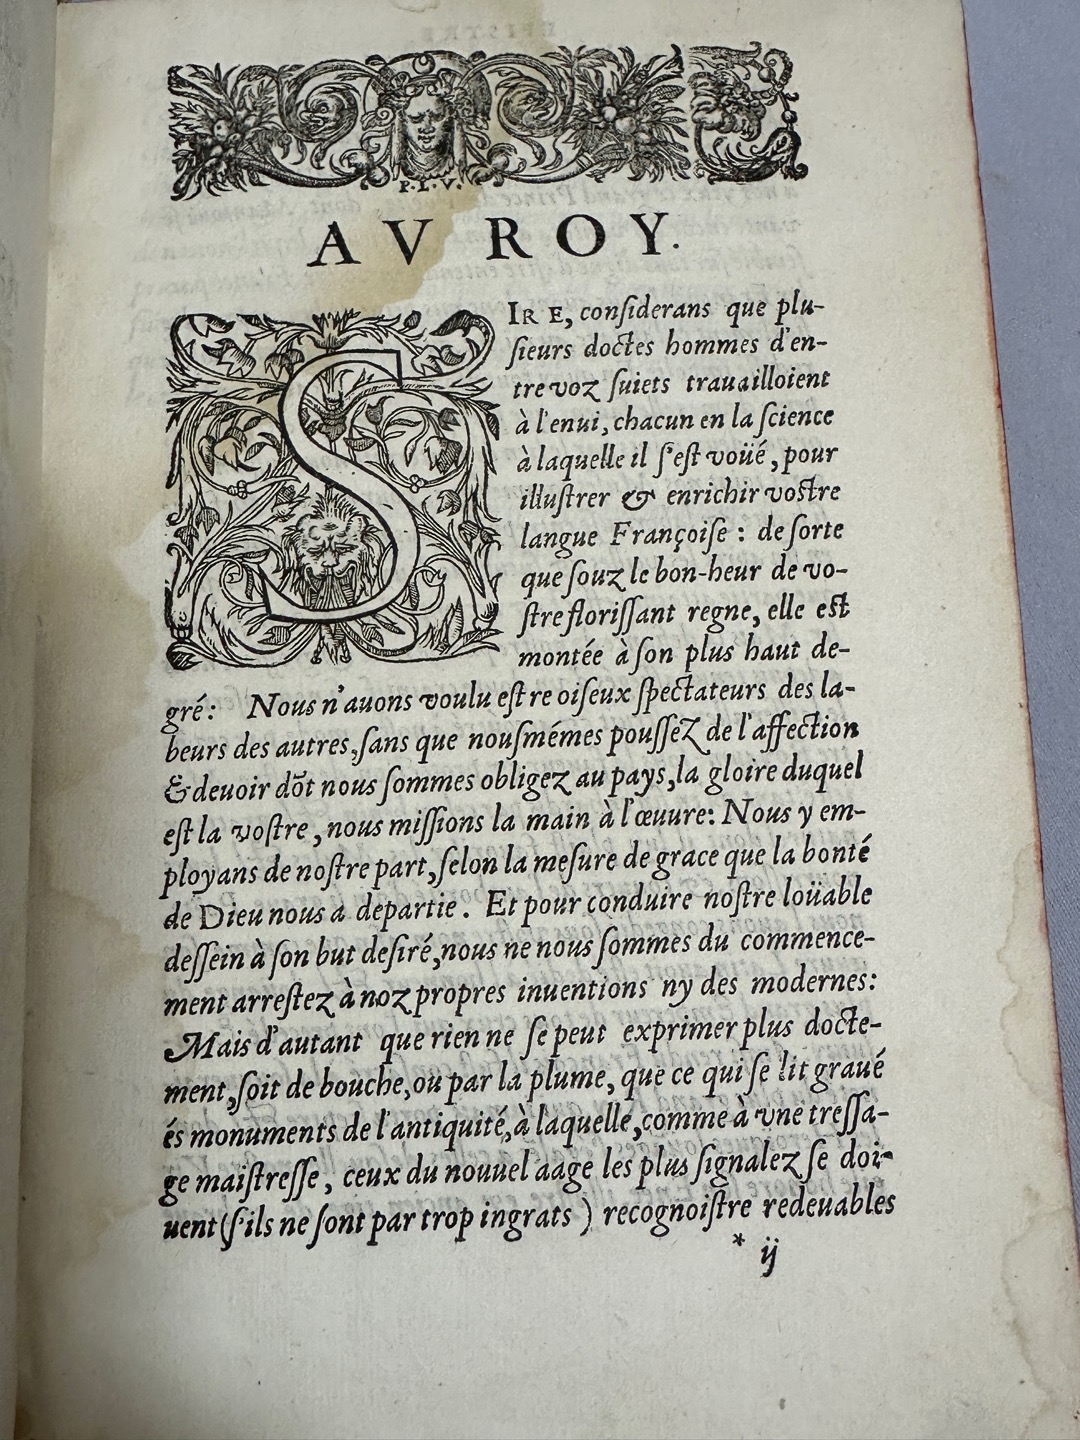 P. L. V.
AV ROY.
SIRE, conſiderans que plu-
ſieurs doctes hommes d'en-
tre voz ſuiets trauailloient
à l'enui, chacun en la ſcience
à laquelle il s'eſt voüé, pour
illuſtrer & enrichir voſtre
langue Françoiſe : de ſorte
que ſouz le bon-heur de vo-
ſtre floriſſant regne, elle eſt
montée à ſon plus haut de-
gré : Nous n'auons voulu eſtre oiſeux ſpectateurs des la-
beurs des autres, ſans que nouſmémes pouſſez de l'affection
& deuoir dõt nous ſommes obligez au pays, la gloire duquel
eſt la voſtre, nous miſſions la main à l'œuure: Nous y em-
ployans de noſtre part, ſelon la meſure de grace que la bonté
de Dieu nous a departie. Et pour conduire noſtre loüable
deſſein à ſon but deſiré, nous ne nous ſommes du commence-
ment arreſtez à noz propres inuentions ny des modernes:
Mais d'autant que rien ne ſe peut exprimer plus docte-
ment, ſoit de bouche, ou par la plume, que ce qui ſe lit graué
és monuments de l'antiquité, à laquelle, comme à vne treſſa-
ge maiſtreſſe, ceux du nouuel aage les plus ſignalez ſe doi-
uent (ſ'ils ne ſont par trop ingrats ) recognoiſtre redeuables
* ij